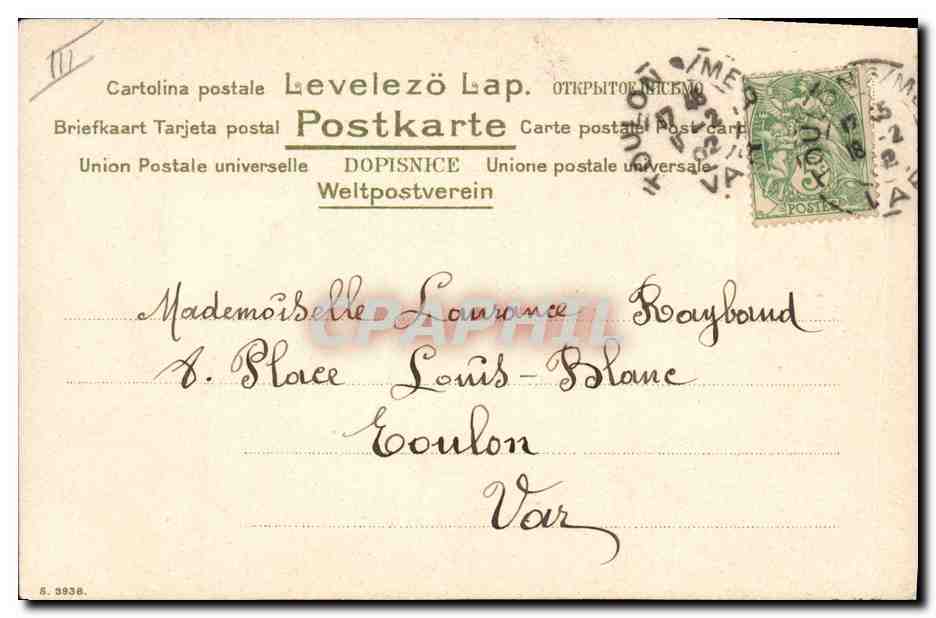 III
Cartolina postale Levelezö Lap. ОТКРЫТОЕ ПИСЬМО
Briefkaart Tarjeta postal Postkarte Carte postale Post card
Union Postale universelle DOPISNICE Unione postale universale
Weltpostverein
TOULON S/MER
VAR
5
POSTES
CPAPHIL
Mademoiselle Laurance Raybaud
8. Place Louis-Blanc
Toulon
Var
S. 3936.